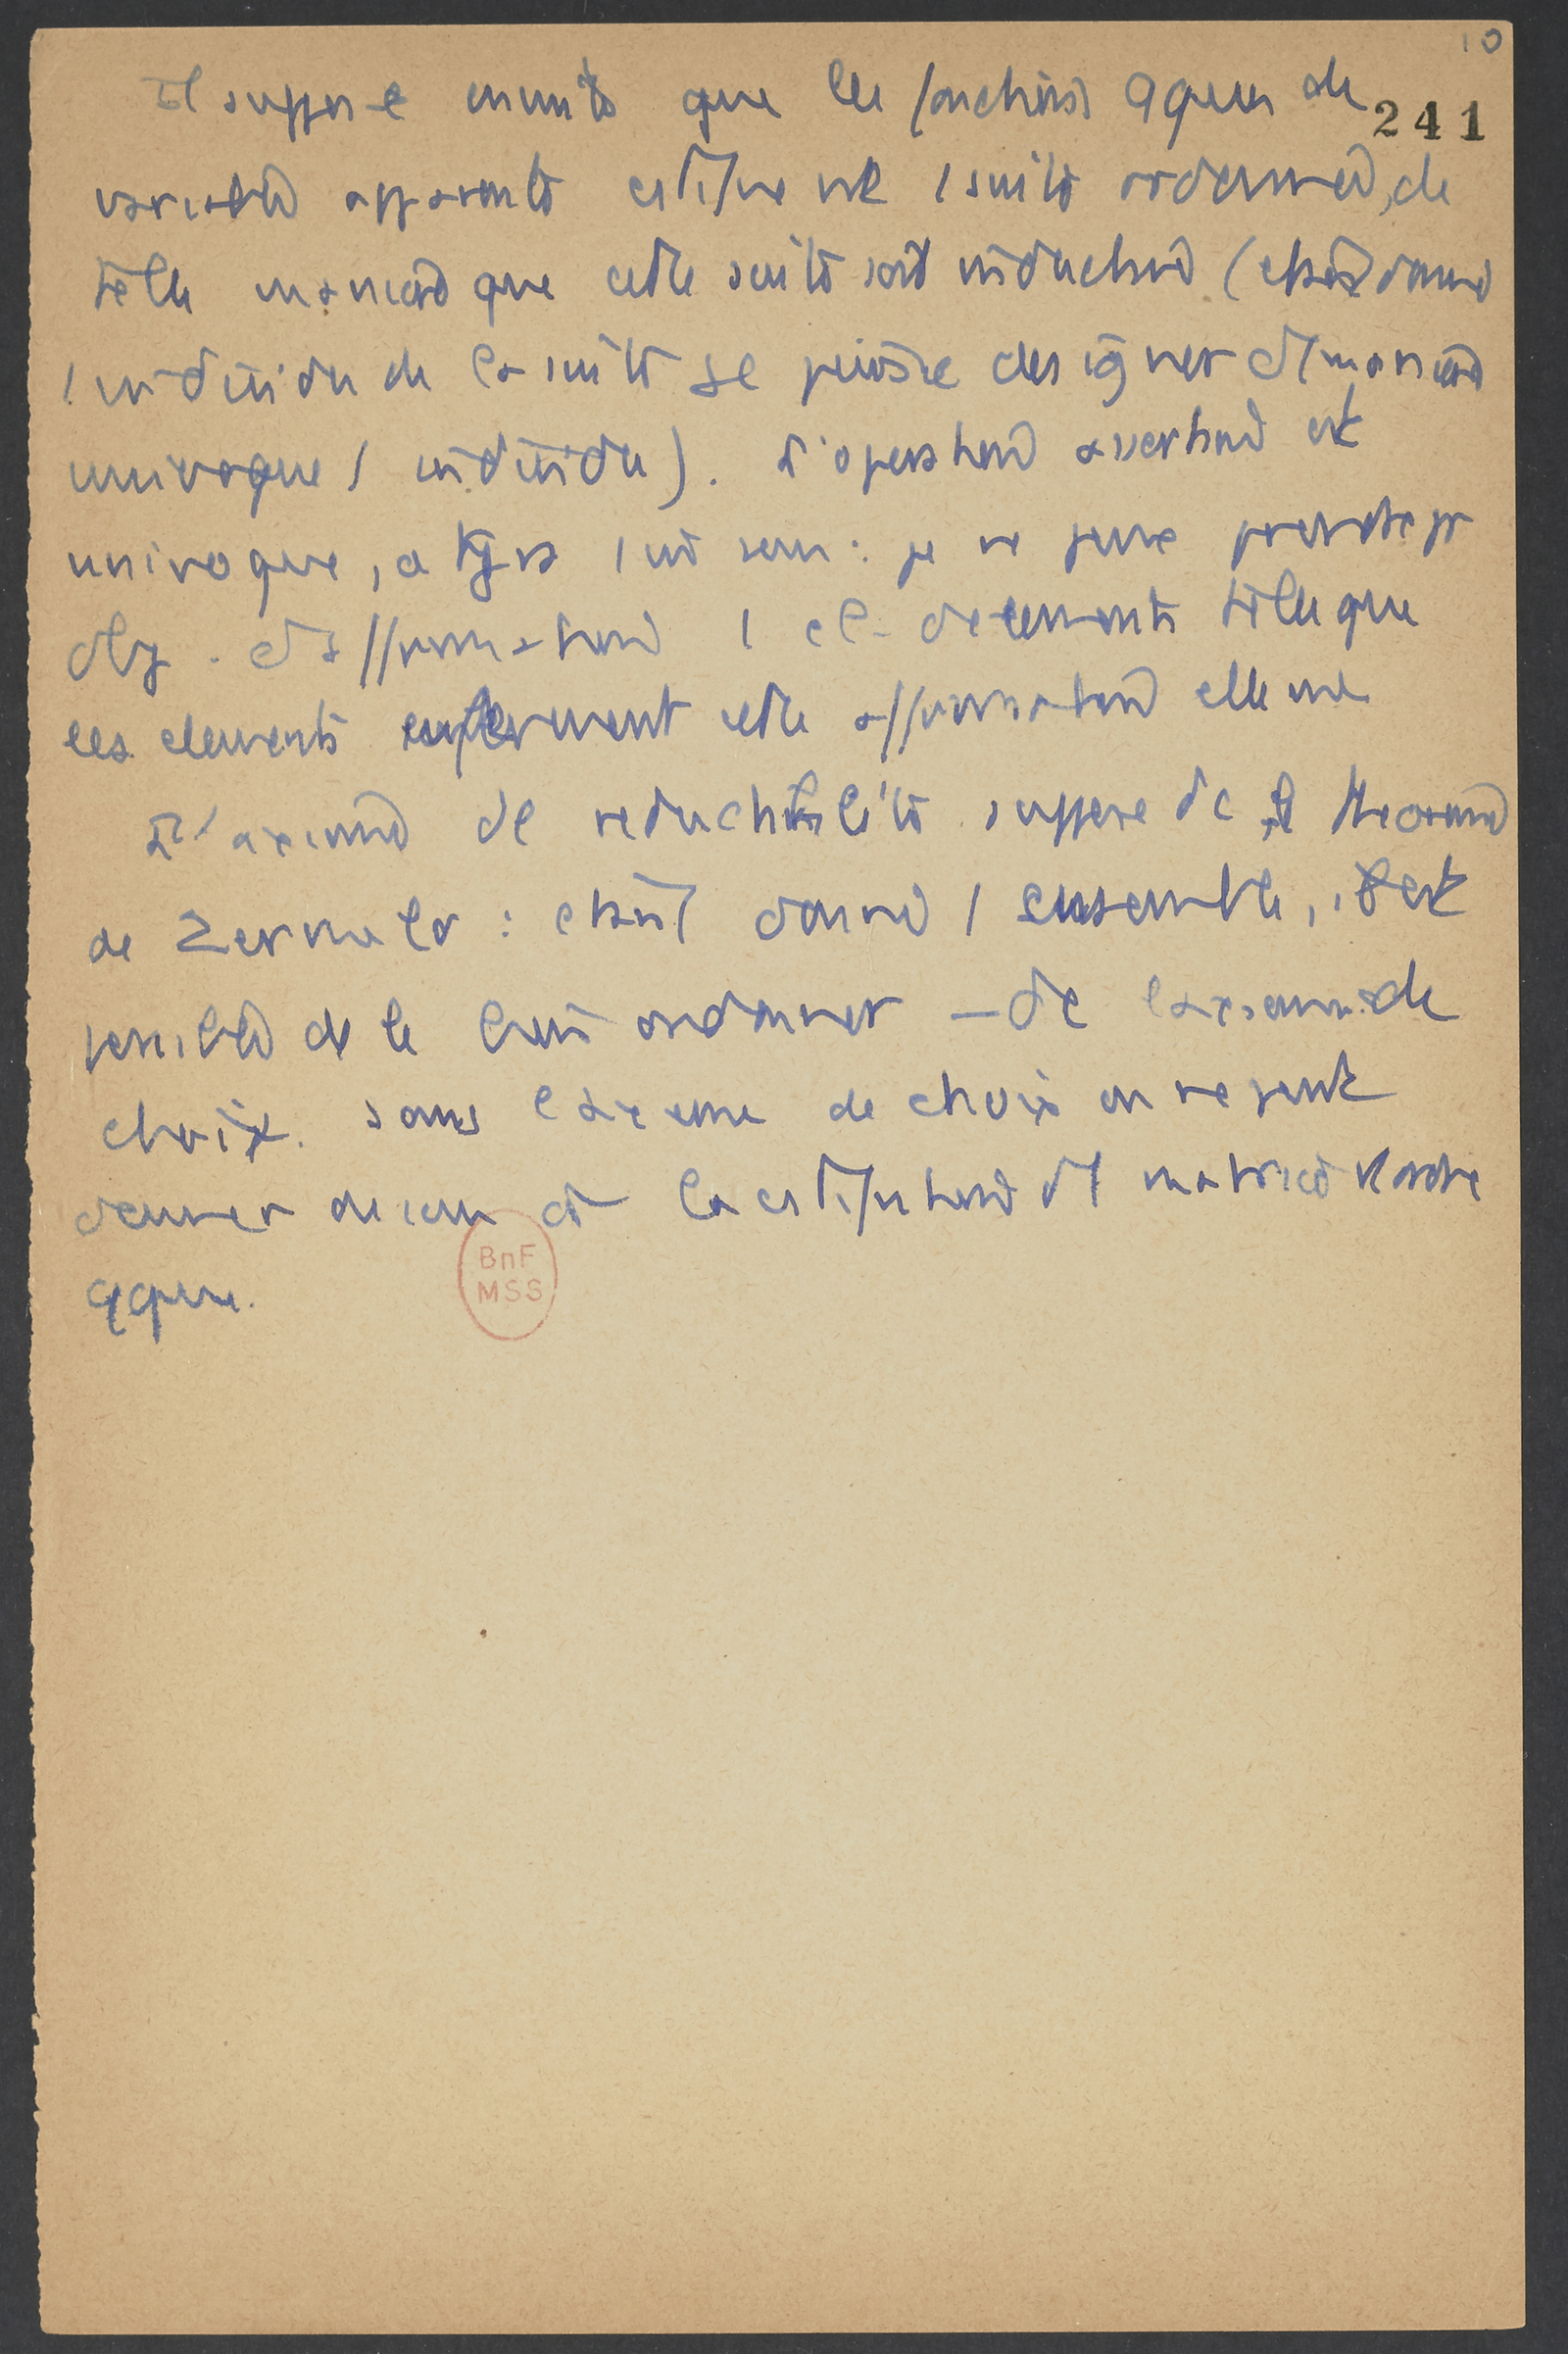 10
Il suppose ensuite que les fonctions qques de
241
variable apparente cstituent 1 suite ordonnée, de
telle manière que cette suite soit inductive (étant donné
1 individu de la suite je puisse désigner d1 manière
univoque 1 individu). L'operation assertive est
univoque, a tjrs 1 seul sens : je ne peux prendre pr
obj. d'affirmation 1 cl. d'elements telle que
les elements enferment cette affirmation elle me
L'axiome de reductibilité suppose dc le theoreme
de Zermelo : étant donné 1 ensemble, il est
possible de le bien ordonner – dc l'axiome de
choix. Sans l'axiome de choix on ne peut
donner de sens à la cstitution d1 matrice d'ordre
qque.
BnF
MSS